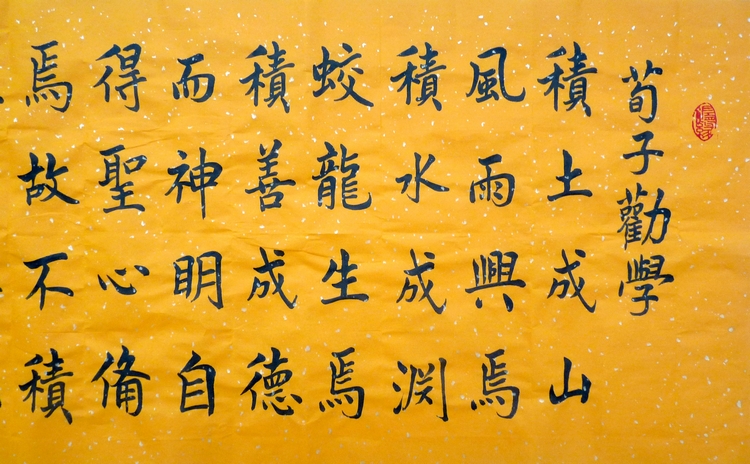 荀子勸學
積土成山
風雨興焉
積水成渊
蛟龍生焉
積善成德
而神明自
得聖心備
焉故不積